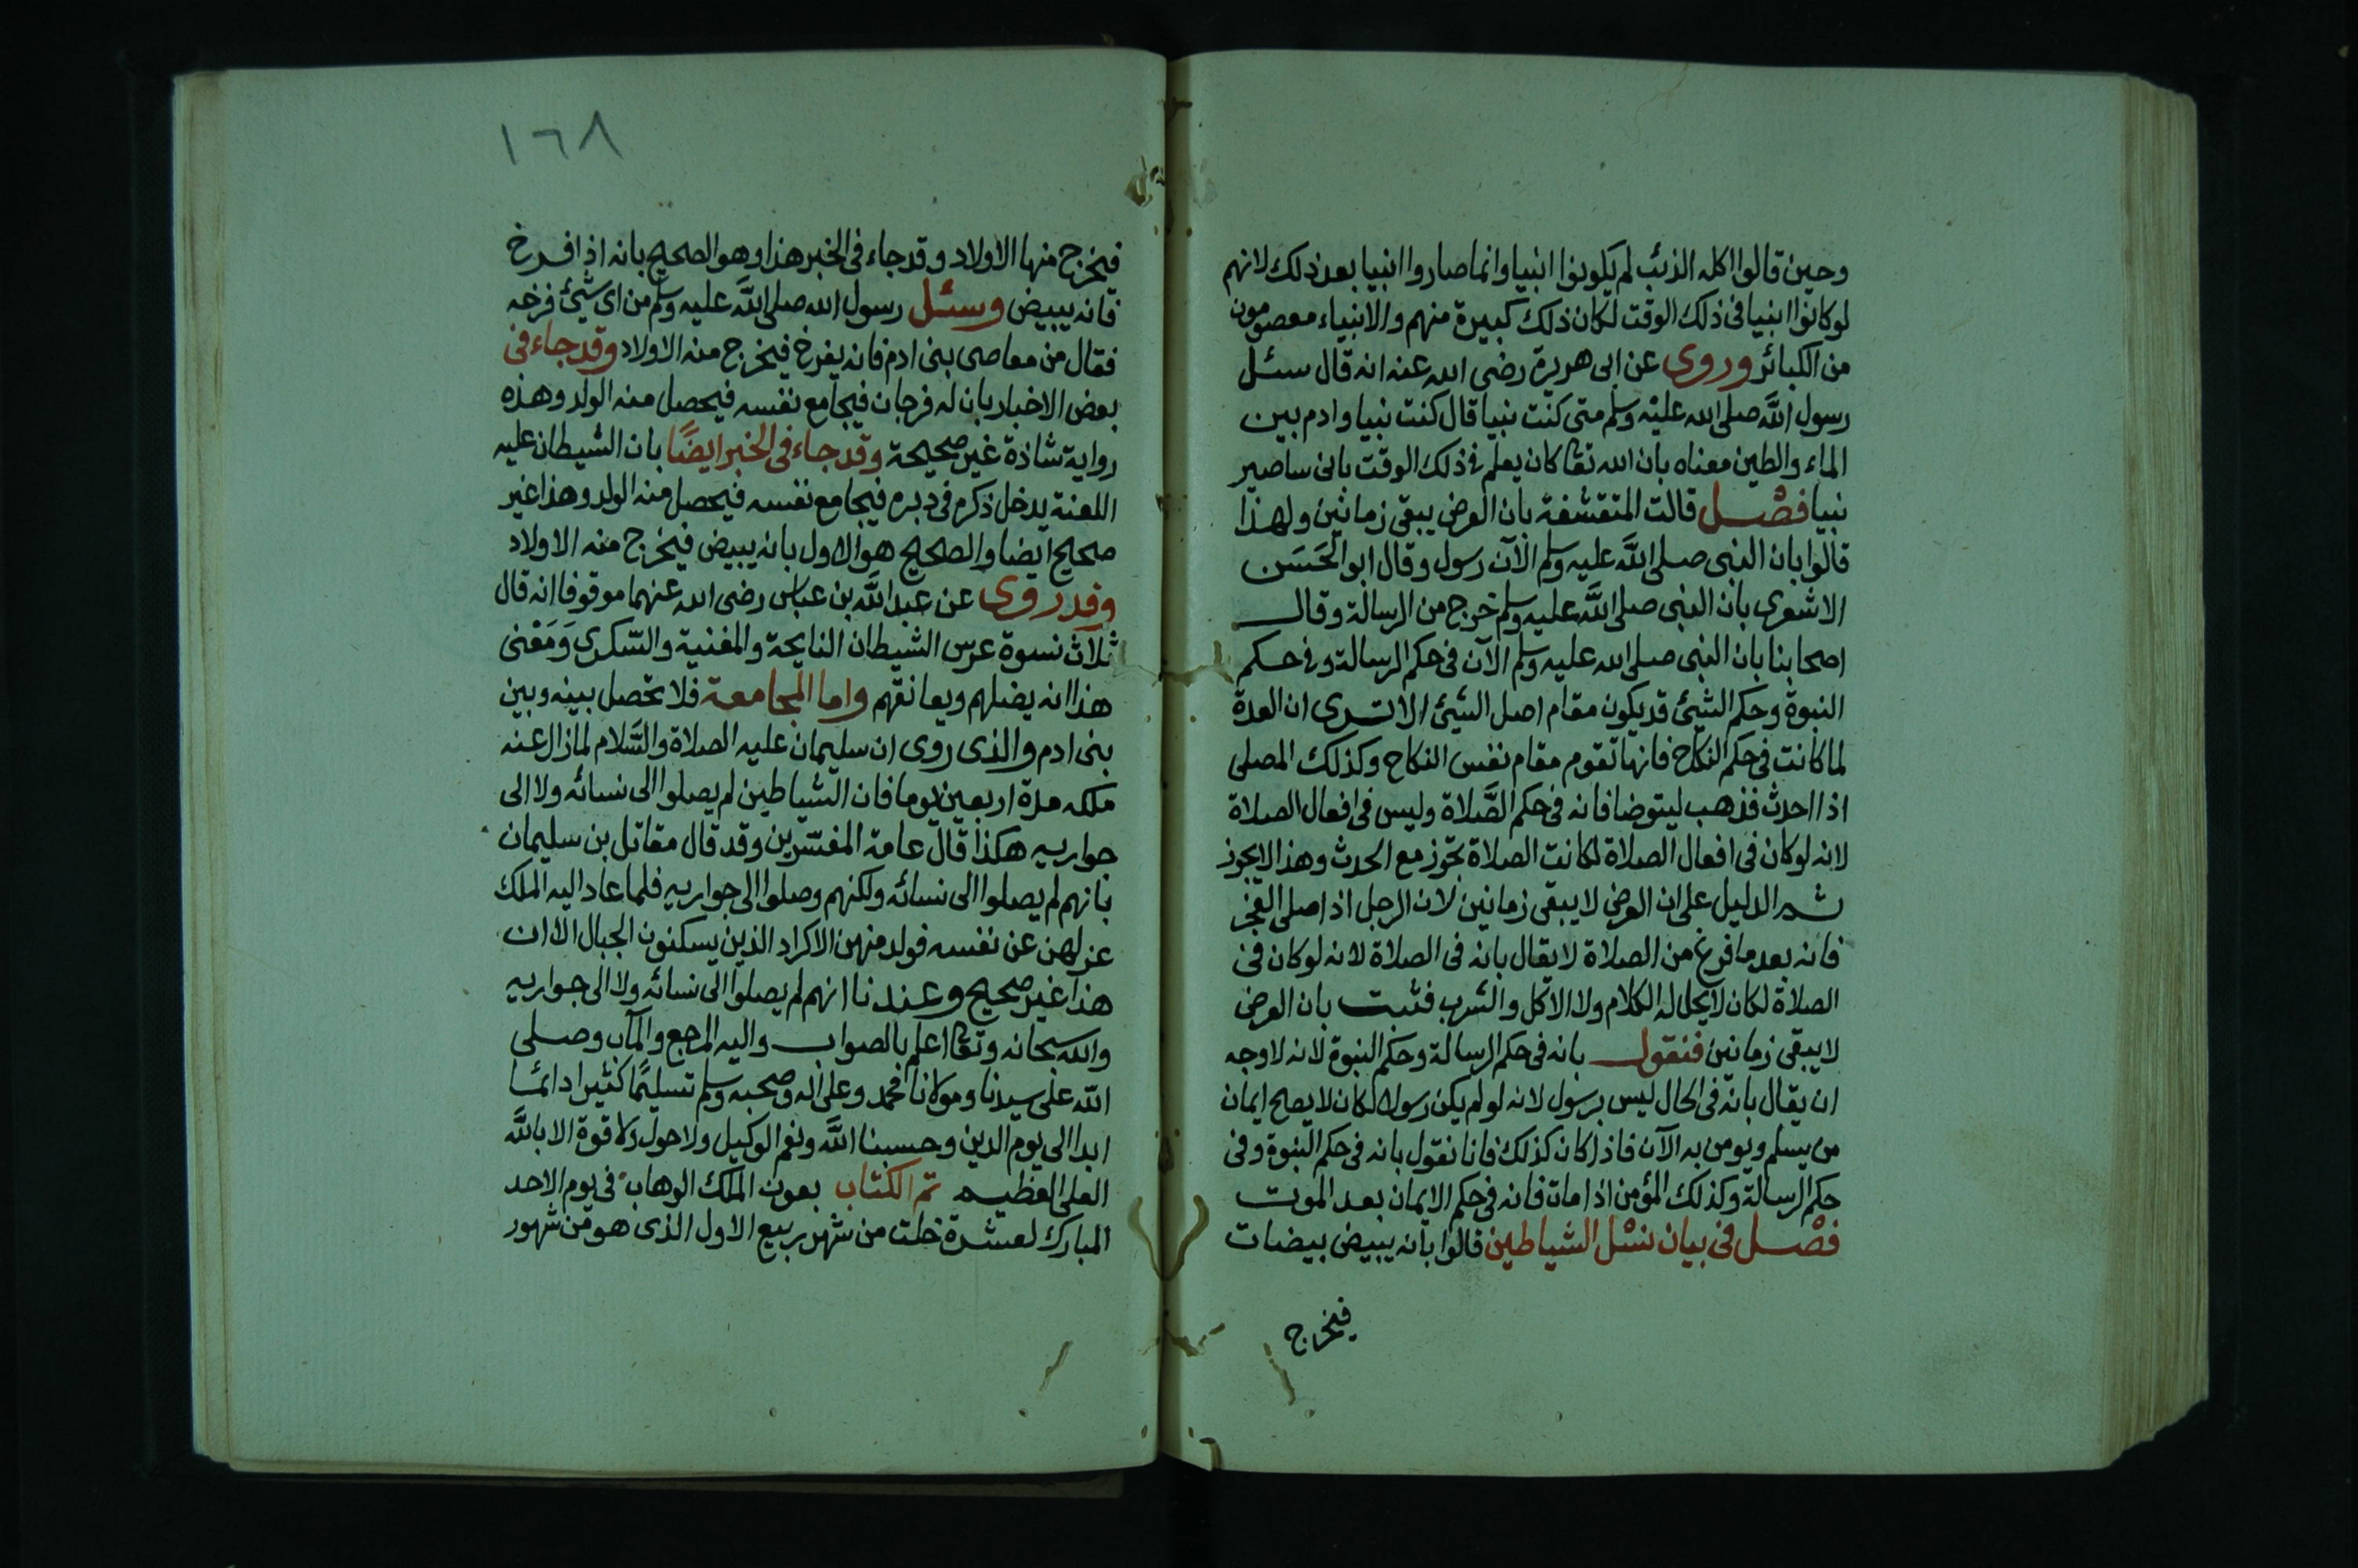 وحين قالوا اكله الذئب لم يكونوا انبيا وانما صاروا انبيا بعد ذلك لانهم
لو كانوا انبيا فى ذلك الوقت لكان ذلك كبيرة منهم والانبياء معصومون
من الكبائر وروى عن ابى هريرة رضى الله عنه انه قال سئل
رسول الله صلى الله عليه وسلم متى كنت نبيا قال كنت نبيا وادم بين
الماء والطين معناه بان الله تعا كان يعلم فى ذلك الوقت بانى ساصير
نبيا فصل قالت المتقشفة بان العرض يبقى زمانين ولهذا
قالوا بان النبى صلى الله عليه وسلم الآن رسول وقال ابو الحَسَن
الاشعرى بان النبى صلى الله عليه وسلم خرج من الرسالة وقال
اصحابنا بان النبى صلى الله عليه وسلم الآن فى حكم الرسالة وفى حكم
النبوة وحكم الشيئ قد يكون مقام اصل الشيئ الا ترى ان العدة
لما كانت فى حكم النكاح فانها تقوم مقام نفس النكاح وكذلك المصلى
اذا احدث فذهب ليتوضا فانه فى حكم الصَّلاة وليس فى افعال الصلاة
لانه لو كان فى افعال الصلاة لكانت الصلاة تجوز مع الحدث وهذا لا يجوز
ثم الدليل على ان العرض لا يبقى زمانين لان الرجل اذا صلى الفجر
فانه بعد ما فرغ من الصلاة لا يقال بانه فى الصلاة لانه لو كان فى
الصلاة لكان لا يحل له الكلام ولا الاكل والشرب فثبت بان العرض
لا يبقى زمانين فنقول بانه فى حكم الرسالة وحكم النبوة لانه لا وجه
ان يقال بانه فى الحال ليس برسول لانه لو لم يكن رسولا لكان لا يصح ايمان
من يسلم ويومن به الآن فاذا كان كذلك فانا نقول بانه فى حكم النبوة وفى
حكم الرسالة وكذلك المؤمن اذا مات فانه فى حكم الايمان بعد الموت
فصْل فى بيان نسْل الشياطين قالوا بانه يبيض بيضات
فيخرج
١٦٨
فيخرج منها الاولاد وقد جاء فى الخبر هذا وهو الصحيح بانه اذا فرخ
فانه يبيض وسئل رسول الله صلى الله عليه وسلم من اى شيئ فرخه
فقال من معاصى بنى ادم فانه يفرخ فيخرج منه الاولاد وقد جاء فى
بعض الاخبار بان له فرجان فيجامع نفسه فيحصل منه الولد وهذه
رواية شاذة غير صحيحة وقد جاء فى الخبر ايضًا بان الشيطان عليه
اللعنة يدخل ذكره فى دبره فيجامع نفسه فيحصل منه الولد وهذا غير
صحيح ايضا والصحيح هو الاول بانه يبيض فيخرج منه الاولاد
وقد روى عن عبد الله بن عباس رضى الله عنهما موقوفا انه قال
ثلاث نسوة عرس الشيطان النايحة والمغنية والسّكرى وَمَعْنى
هذا انه يضلهم ويعانقهم واما المجامعة فلا تحصل بينه وبين
بنى ادم والذى روى ان سليمان عليه الصلاة والسَّلام لما زال عنه
ملكه مدة اربعين يوما فان الشياطين لم يصلوا الى نسائه ولا الى
جواريه هكذا قال عامة المفسّرين وقد قال مقاتل بن سليمان
بانهم لم يصلوا الى نسائه ولكنهم وصلوا الى جواريه فلما عاد اليه الملك
عزلهن عن نفسه فولد منهن الاكراد الذين يسكنون الجبال الا ان
هذا غير صحيح وعندنا انهم لم يصلوا الى نسائه ولا الى جواريه
والله سبحانه وتعا اعلم بالصواب واليه المرجع والمآب وصلى
الله على سيدنا ومولانا محمد وعلى اله وصحبه وسلم تسليمًا كثيرا دائما
ابدا الى يوم الدين وحسبنا الله ونعم الوكيل ولا حول ولا قوة الا بالله
العلى العظيم تم الكتاب بعون الملك الوهاب فى يوم الاحد
المبارك لعشرة خلت من شهر ربيع الاول الذى هو من شهور